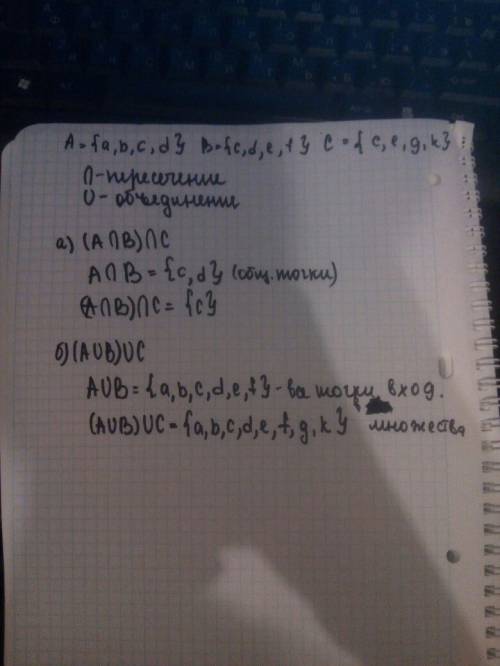 A = {a,b,c,d} B={c,d,e,f} C = { c,e,g,k}
∩-пересечение
U- объединение
а) (A∩B)∩C
A∩B = {c,d} (общ. точки)
(A∩B)∩C= {c}
б) (AUB)UC
AUB = {a,b,c,d,e,f} - все точки, вход.
(AUB)UC = {a,b,c,d,e,f,g,k} в множества